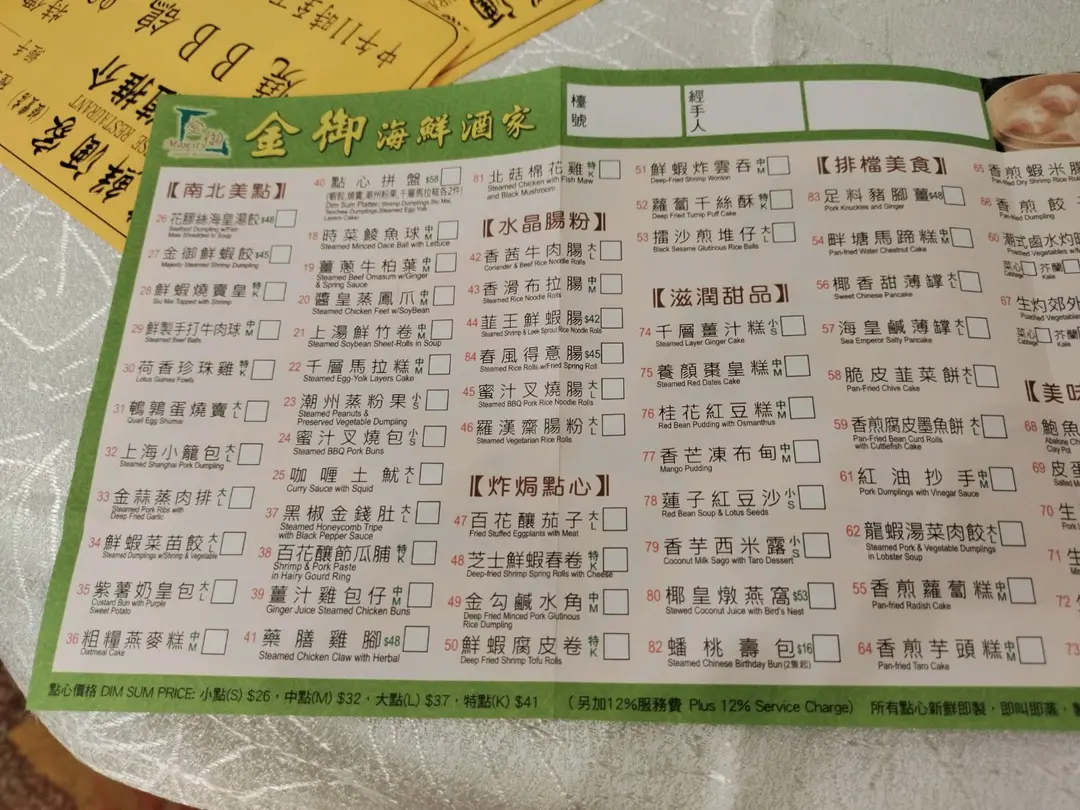 金御海鮮酒家
檯號
經手人
【南北美點】
26 花膠絲海皇湯餃 $48
Seafood Dumpling w/Fish
Maw Shredded in Soup
27 金御鮮蝦餃 $45
Majesty Steamed Shrimp Dumpling
28 鮮蝦燒賣皇 特K
Siu Mai Topped with Shrimp
29 鮮製手打牛肉球 中M
Steamed Beef Balls
30 荷香珍珠雞 特K
Lotus Guinea Fowls
31 鵪鶉蛋燒賣 大L
Quail Egg Shumai
32 上海小籠包 大L
Steamed Shanghai Pork Dumpling
33 金蒜蒸肉排 大L
Steamed Pork Ribs with
Deep Fried Garlic
34 鮮蝦菜苗餃 大L
Steamed Dumplings w/Shrimp & Vegetable
35 紫薯奶皇包 大L
Custard Bun with Purple
Sweet Potato
36 粗糧燕麥糕 中M
Oatmeal Cake
40 點心拼盤 $58
(蝦餃,燒賣,潮州粉果,千層馬拉糕各2件)
Dim Sum Platter: Shrimp Dumplings Siu Mai
Teochew Dumplings,Steamed Egg-Yolk
Layers Cake)
18 時菜鯪魚球 中M
Steamed Minced Dace Ball with Lettuce
19 薑蔥牛柏葉 中M
Steamed Beef Omasum w/Ginger
& Spring Sauce
20 醬皇蒸鳳爪 中M
Steamed Chicken Feet w/SoyBean
21 上湯鮮竹卷 中M
Steamed Soybean Sheet-Rolls in Soup
22 千層馬拉糕 中M
Steamed Egg-Yolk Layers Cake
23 潮州蒸粉果 小S
Steamed Peanuts &
Preserved Vegetable Dumpling
24 蜜汁叉燒包 小S
Steamed BBQ Pork Buns
25 咖喱土魷 大L
Curry Sauce with Squid
37 黑椒金錢肚 大L
Steamed Honeycomb Tripe
with Black Pepper Sauce
38 百花釀節瓜脯 特K
Shrimp & Pork Paste
in Hairy Gourd Ring
39 薑汁雞包仔 中M
Ginger Juice Steamed Chicken Buns
41 藥膳雞腳 $48
Steamed Chicken Claw with Herbal
81 北菇棉花雞 特K
Steamed Chicken with Fish Maw
and Black Mushroom
【水晶腸粉】
42 香茜牛肉腸 大L
Coriander & Beef Rice Noodle Rolls
43 香滑布拉腸 中M
Steamed Rice Noodle Rolls
44 韮王鮮蝦腸 $42
Steamed Shrimp & Leek Sprout Rice Noodle Rolls
84 春風得意腸 $45
Steamed Rice Rolls w/Fried Spring Roll
45 蜜汁叉燒腸 大L
Steamed BBQ Pork Rice Noodle Rolls
46 羅漢齋腸粉 大L
Steamed Vegetarian Rice Rolls
【炸焗點心】
47 百花釀茄子 大L
Fried Stuffed Eggplants with Meat
48 芝士鮮蝦春卷 特K
Deep-fried Shrimp Spring Rolls with Cheese
49 金勾鹹水角 中M
Deep Fried Minced Pork Glutinous
Rice Dumpling
50 鮮蝦腐皮卷 特K
Deep Fried Shrimp Tofu Rolls
51 鮮蝦炸雲吞 中M
Deep-Fried Shrimp Wonton
52 蘿蔔千絲酥 特K
Deep Fried Turnip Puff Cake
53 擂沙煎堆仔 大L
Black Sesame Glutinous Rice Balls
【滋潤甜品】
74 千層薑汁糕 小S
Steamed Layer Ginger Cake
75 養顏棗皇糕 中M
Steamed Red Dates Cake
76 桂花紅豆糕 中M
Red Bean Pudding with Osmanthus
77 香芒凍布甸 中M
Mango Pudding
78 蓮子紅豆沙 小S
Red Bean Soup & Lotus Seeds
79 香芋西米露 小S
Coconut Milk Sago with Taro Dessert
80 椰皇燉燕窩 $53
Stewed Coconut Juice with Bird's Nest
82 蟠桃壽包 $16
Steamed Chinese Birthday Bun (2隻起)
【排檔美食】
83 足料豬腳薑 $48
Pork Knuckles and Ginger
54 畔塘馬蹄糕 中M
Pan-fried Water Chestnut Cake
56 椰香甜薄罉 大L
Sweet Chinese Pancake
57 海皇鹹薄罉 大L
Sea Emperor Salty Pancake
58 脆皮韮菜餅 大L
Pan-Fried Chive Cake
59 香煎腐皮墨魚餅 大L
Pan-Fried Bean Curd Rolls
with Cuttlefish Cake
61 紅油抄手 中M
Pork Dumplings with Vinegar Sauce
62 龍蝦湯菜肉餃 大L
Steamed Pork & Vegetable Dumplings
in Lobster Soup
55 香煎蘿蔔糕 中M
Pan-fried Radish Cake
64 香煎芋頭糕 中M
Pan-fried Taro Cake
65 香煎蝦米腸
Pan-fried Dry Shrimp Rice
66 香煎餃
Pan-fried Dumpling
60 潮式鹵水灼
Poached Vegetables
菜心 芥蘭
Cabbage Kale
67 生灼郊外
Poached Vegetables
菜心 芥蘭
Cabbage Kale
【美味
68 鮑魚
Abalone
Clay Pot
69 皮蛋
Salted
70 生
71 生
72
73
點心價格 DIM SUM PRICE: 小點(S) $26，中點(M) $32，大點(L) $37，特點(K) $41 （另加12%服務費 Plus 12% Service Charge） 所有點心新鮮即製，即叫即蒸，